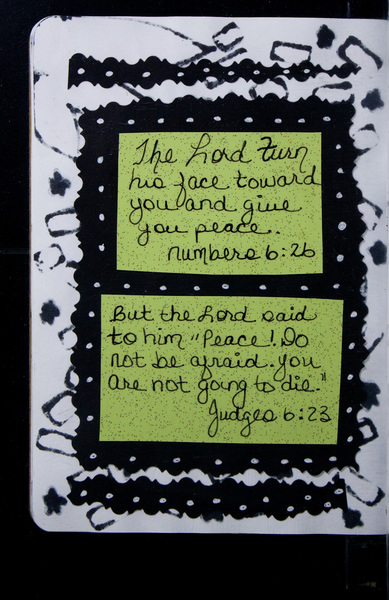 The Lord turn
his face toward
you and give
you peace..
numbers 6:26
But the Lord said
to him "Peace! Do
not be afraid. you
are not going to die."
Judges 6:23